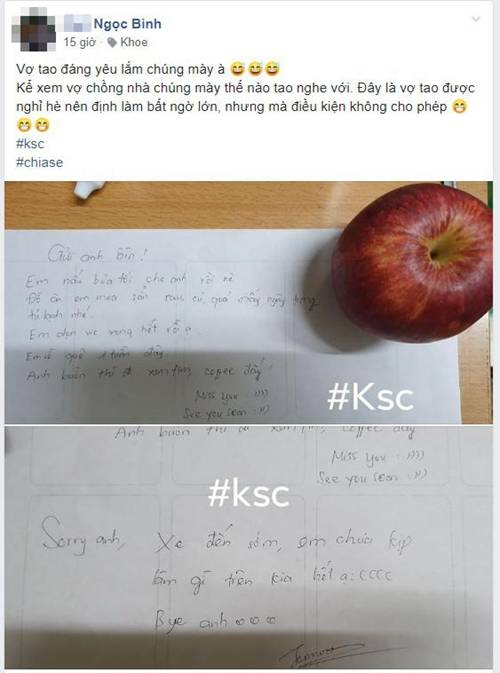 Ngọc Bình
15 giờ · Khoe
Vợ tao đáng yêu lắm chúng mày à 😅😅😅
Kể xem vợ chồng nhà chúng mày thế nào tao nghe với. Đây là vợ tao được
nghỉ hè nên định làm bất ngờ lớn, nhưng mà điều kiện không cho phép 😁
😁😁
#ksc
#chiase
Gửi anh Bin!
Em nấu bữa tối cho anh rồi nè
Đồ ăn em mua sẵn rau củ, quả mấy ngày trong
tủ lạnh nhé.
Em dọn wc xong hết rồi ạ
Em về quê 1 tuần đây
Anh buồn thì đi xem fim, coffee đấy!
Miss you :))))
See you soon :))
#Ksc
Anh buồn thì đi xem fim, coffee đấy
Miss you :))))
See you soon :))
#ksc
Sorry anh,
Xe đến sớm, em chưa kịp
làm gì trên kia hết ạ :((((
Bye anh